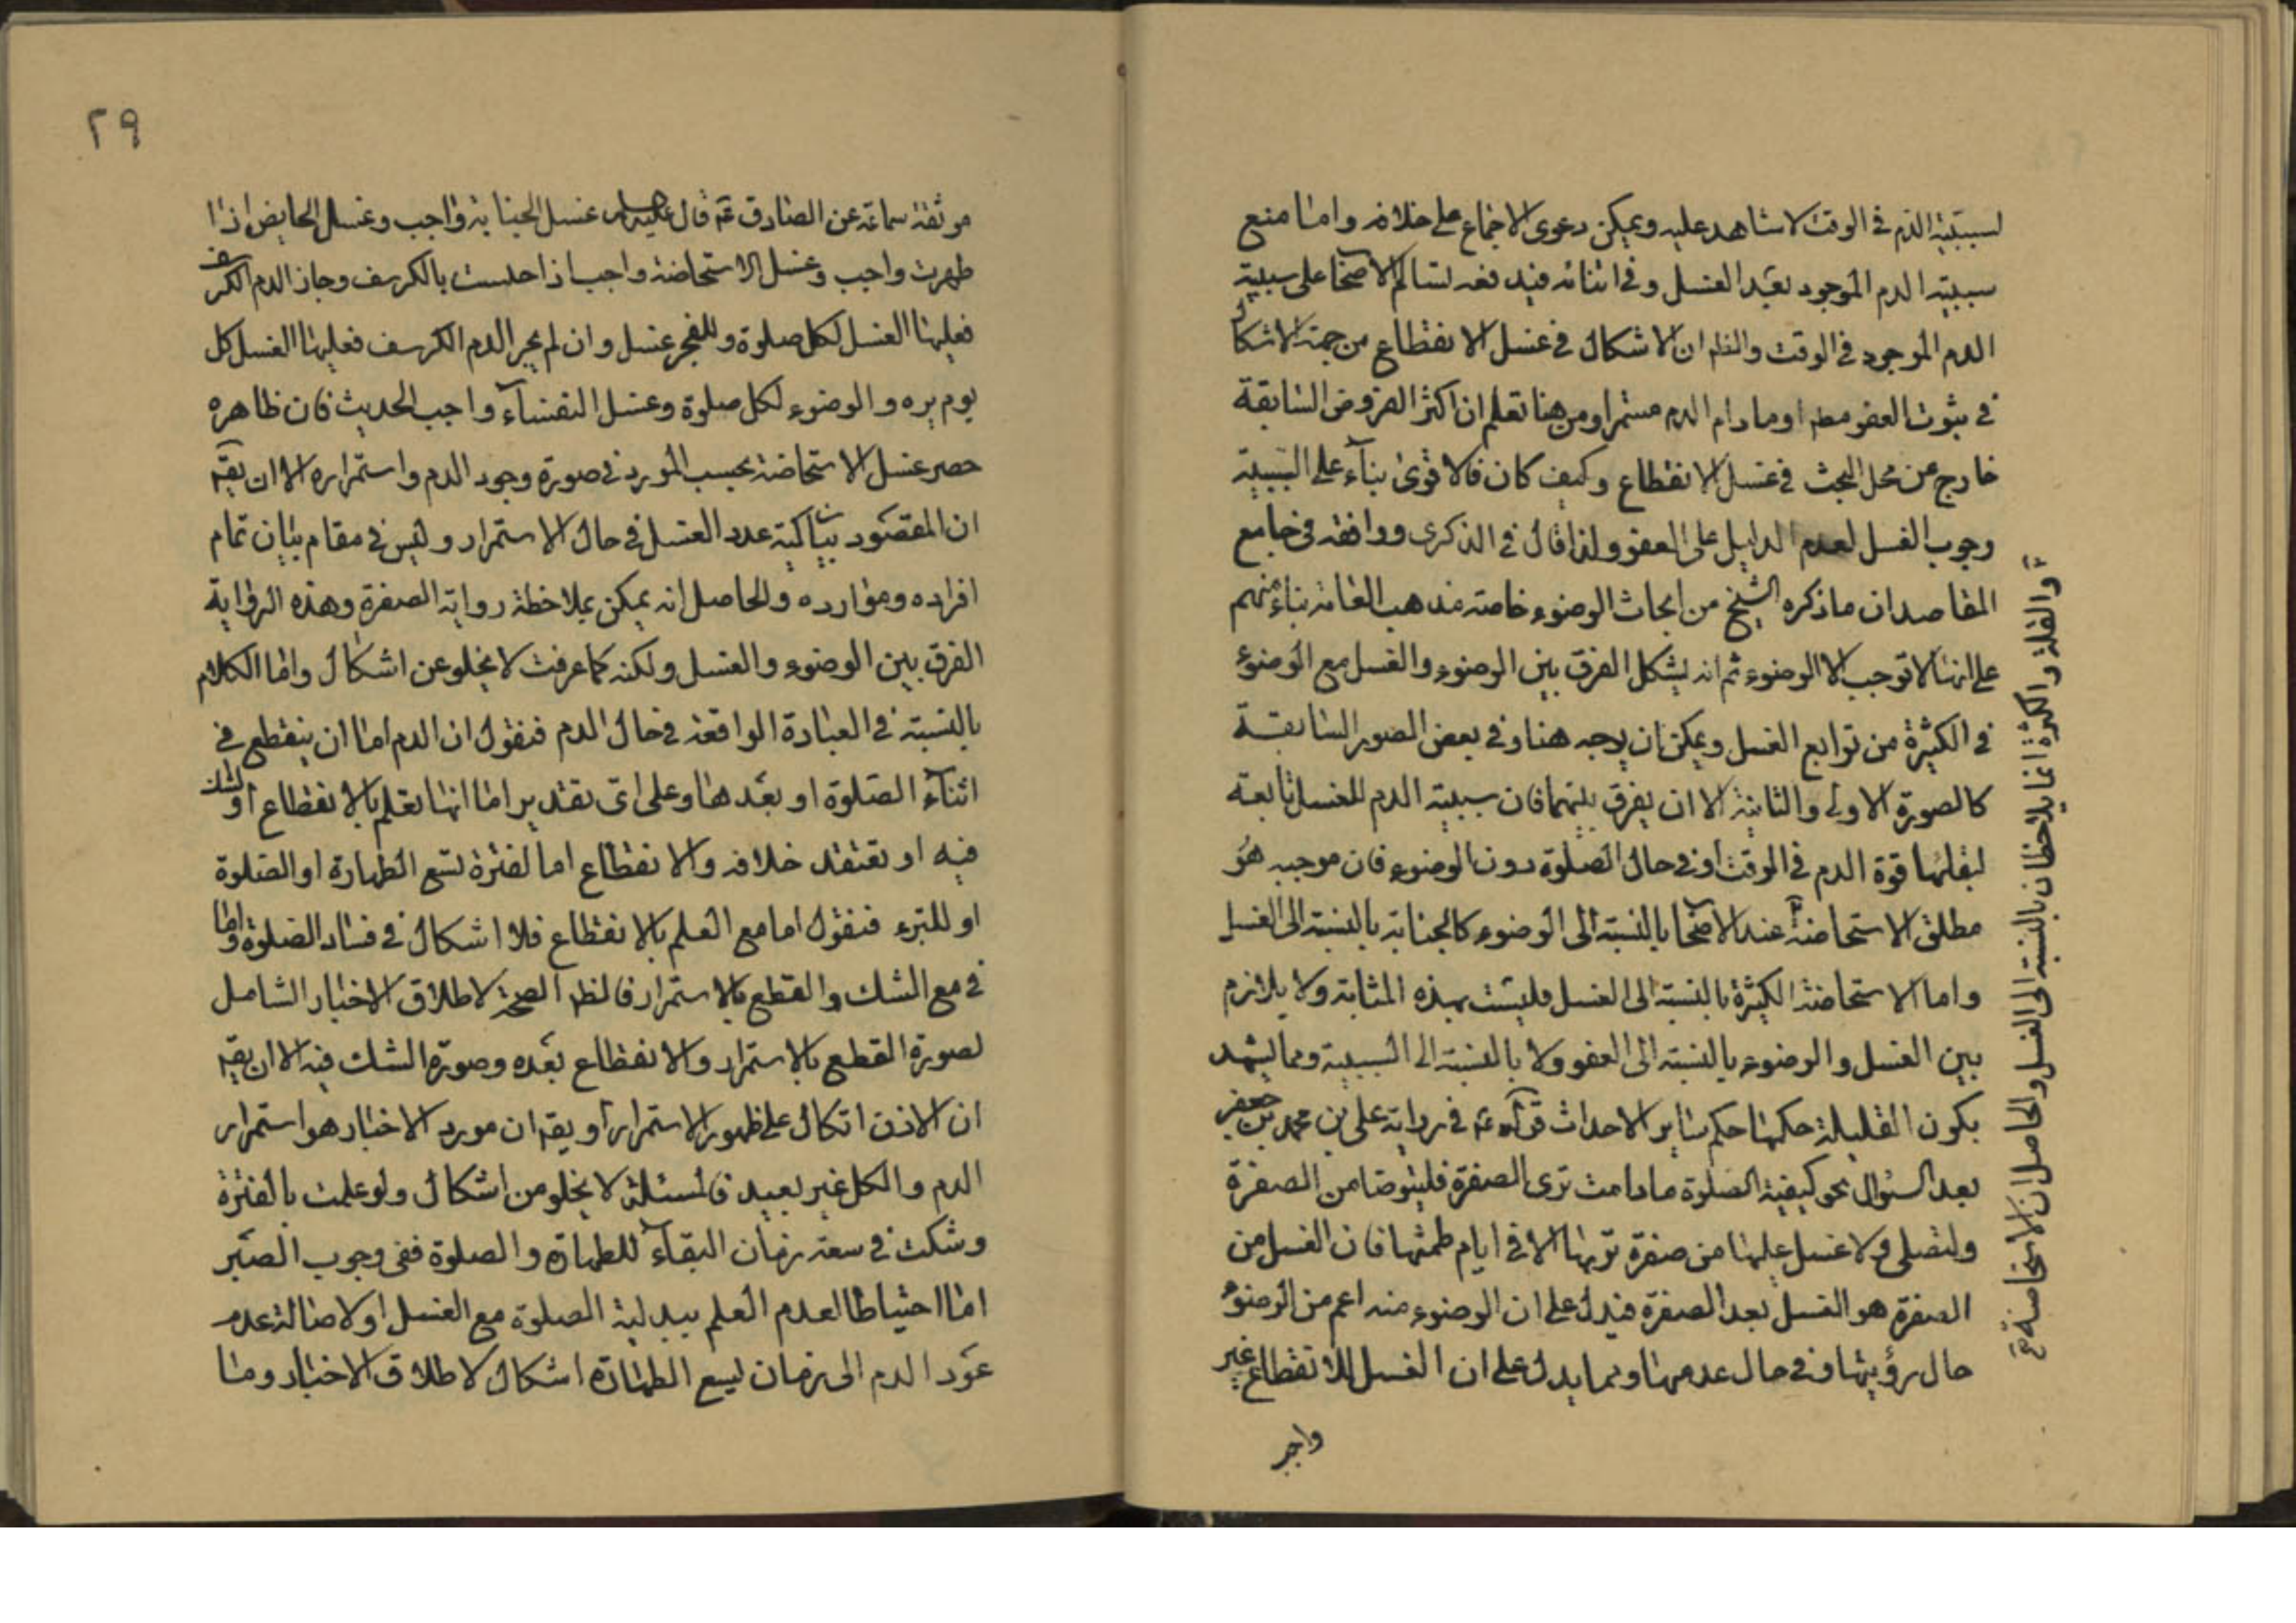 لسببيّة الدّم في الوقت لا شاهد عليه ويمكن دعوى الاجماع على خلافه وامّا منع
سببيّة الدم الموجود بعد الغسل وفي اثنائه ففيه فعد لتسالم الاصحاب على سببيّة
الدم الموجود في الوقت والظم ان الاشكال في غسل الانقطاع من جهة الاشكال
في ثبوت العفو مطم او ما دام الدم مستمرا ومن هنا تعلم ان اكثر الفروض السّابقة
خارج عن محل البحث في غسل الانقطاع وكيف كان فالاقوى بناء على السّببيّة
وجوب الغسل لعدم الدليل على العفو ولذا قال في الذكرى ووافقه في جامع
المقاصد ان ما ذكره الشيخ من ايجاب الوضوء خاصّة مذهب العامّة بناء منهم
على انها لا توجب الا الوضوء ثم انه يشكل الفرق بين الوضوء والغسل مع الوضوء
في الكثيرة من توابع الغسل ويمكن ان يوجه هنا وفي بعض الصور السّابقة
كالصورة الاولى والثانية الا ان يفرق بينهما فان سببيّة الدم للغسل تابعة
لبقائها قوة الدم في الوقت او في حال الصّلوة دون الوضوء فان موجبه هو
مطلق الاستحاضة عند الاصحاب بالنسبة الى الوضوء كالجنابة بالنسبة الى الغسل
واما الاستحاضة الكثيرة بالنسبة الى الغسل فليست بهذه المثابة ولا يلازم
بين الغسل والوضوء بالنسبة الى العفو ولا بالنسبة الى السببيّة ومما يشهد
بكون القليلة حكمها حكم ساير الاحداث قوله ع في رواية علي بن محمد بن جعفر
بعد السؤال نحو كيفية الصّلوة ما دامت ترى الصفرة فليتوضا من الصفرة
ولتصلي ولا غسل عليها من صفرة تريها الا في ايام طمثها فان الغسل من
الصفرة هو الغسل بعد الصفرة فيدل على ان الوضوء منه اعم من الوضوء
حال رؤيتها وفي حال عدمها ومما يدل على ان الغسل للانقطاع غير
واجب
والقلة والكثرة انما يلاحظان بالنسبة الى الغسل والحاصل ان الاستحاضة
٢٩
موثقة سماعة عن الصّادق ع قال عليه السلام غسل الجنابة واجب وغسل الحايض اذا
طهرت واجب وغسل الاستحاضة واجب اذا احتست بالكرسف وجاز الدم الكرسف
فعليها الغسل لكل صلوة وللفجر غسل وان لم يجز الدم الكرسف فعليها الغسل كل
يوم مره والوضوء لكل صلوة وغسل النفساء واجب الحديث فان ظاهره
حصر غسل الاستحاضة بحسب المورد في صورة وجود الدم واستمراره الا ان يقم
ان المقصود بيان كمية عدد الغسل في حال الاستمرار وليس في مقام بيان تمام
افراده وموارده والحاصل انه يمكن بملاحظة رواية الصفرة وهذه الرّواية
الفرق بين الوضوء والغسل ولكنه كما عرفت لا يخلو عن اشكال وامّا الكلام
بالنّسبة في العبادة الواقعة في حال الدم فنقول ان الدم امّا ان ينقطع في
اثناء الصّلوة او بعدها وعلى اى تقدير امّا انها تعلم بالانقطاع او تشك
فيه او تعتقد خلافه والانقطاع اما لفترة تسع الطهارة او الصّلوة
او للبرء فنقول اما مع العلم بالانقطاع فلا اشكال في فساد الصّلوة وامّا
في مع الشك والقطع بالاستمرار فالظم الصحة لاطلاق الاخبار الشّامل
لصورة القطع بالاستمرار والانقطاع بعده وصورة الشك فيه الا ان يقم
ان الاذن اتكال على ظهور الاستمرار او يقم ان مورد الاخبار هو استمرار
الدم والكل غير بعيد فالمسئلة لا يخلو من اشكال ولو علمت بالفترة
وشكت في سعة زمان البقاء للطهارة والصلوة ففي وجوب الصّبر
امّا احتياطا لعدم العلم ببدلية الصلوة مع الغسل او لاصالة عدم
عود الدم الى زمان ليسع الطهارة اشكال لاطلاق الاخبار وما